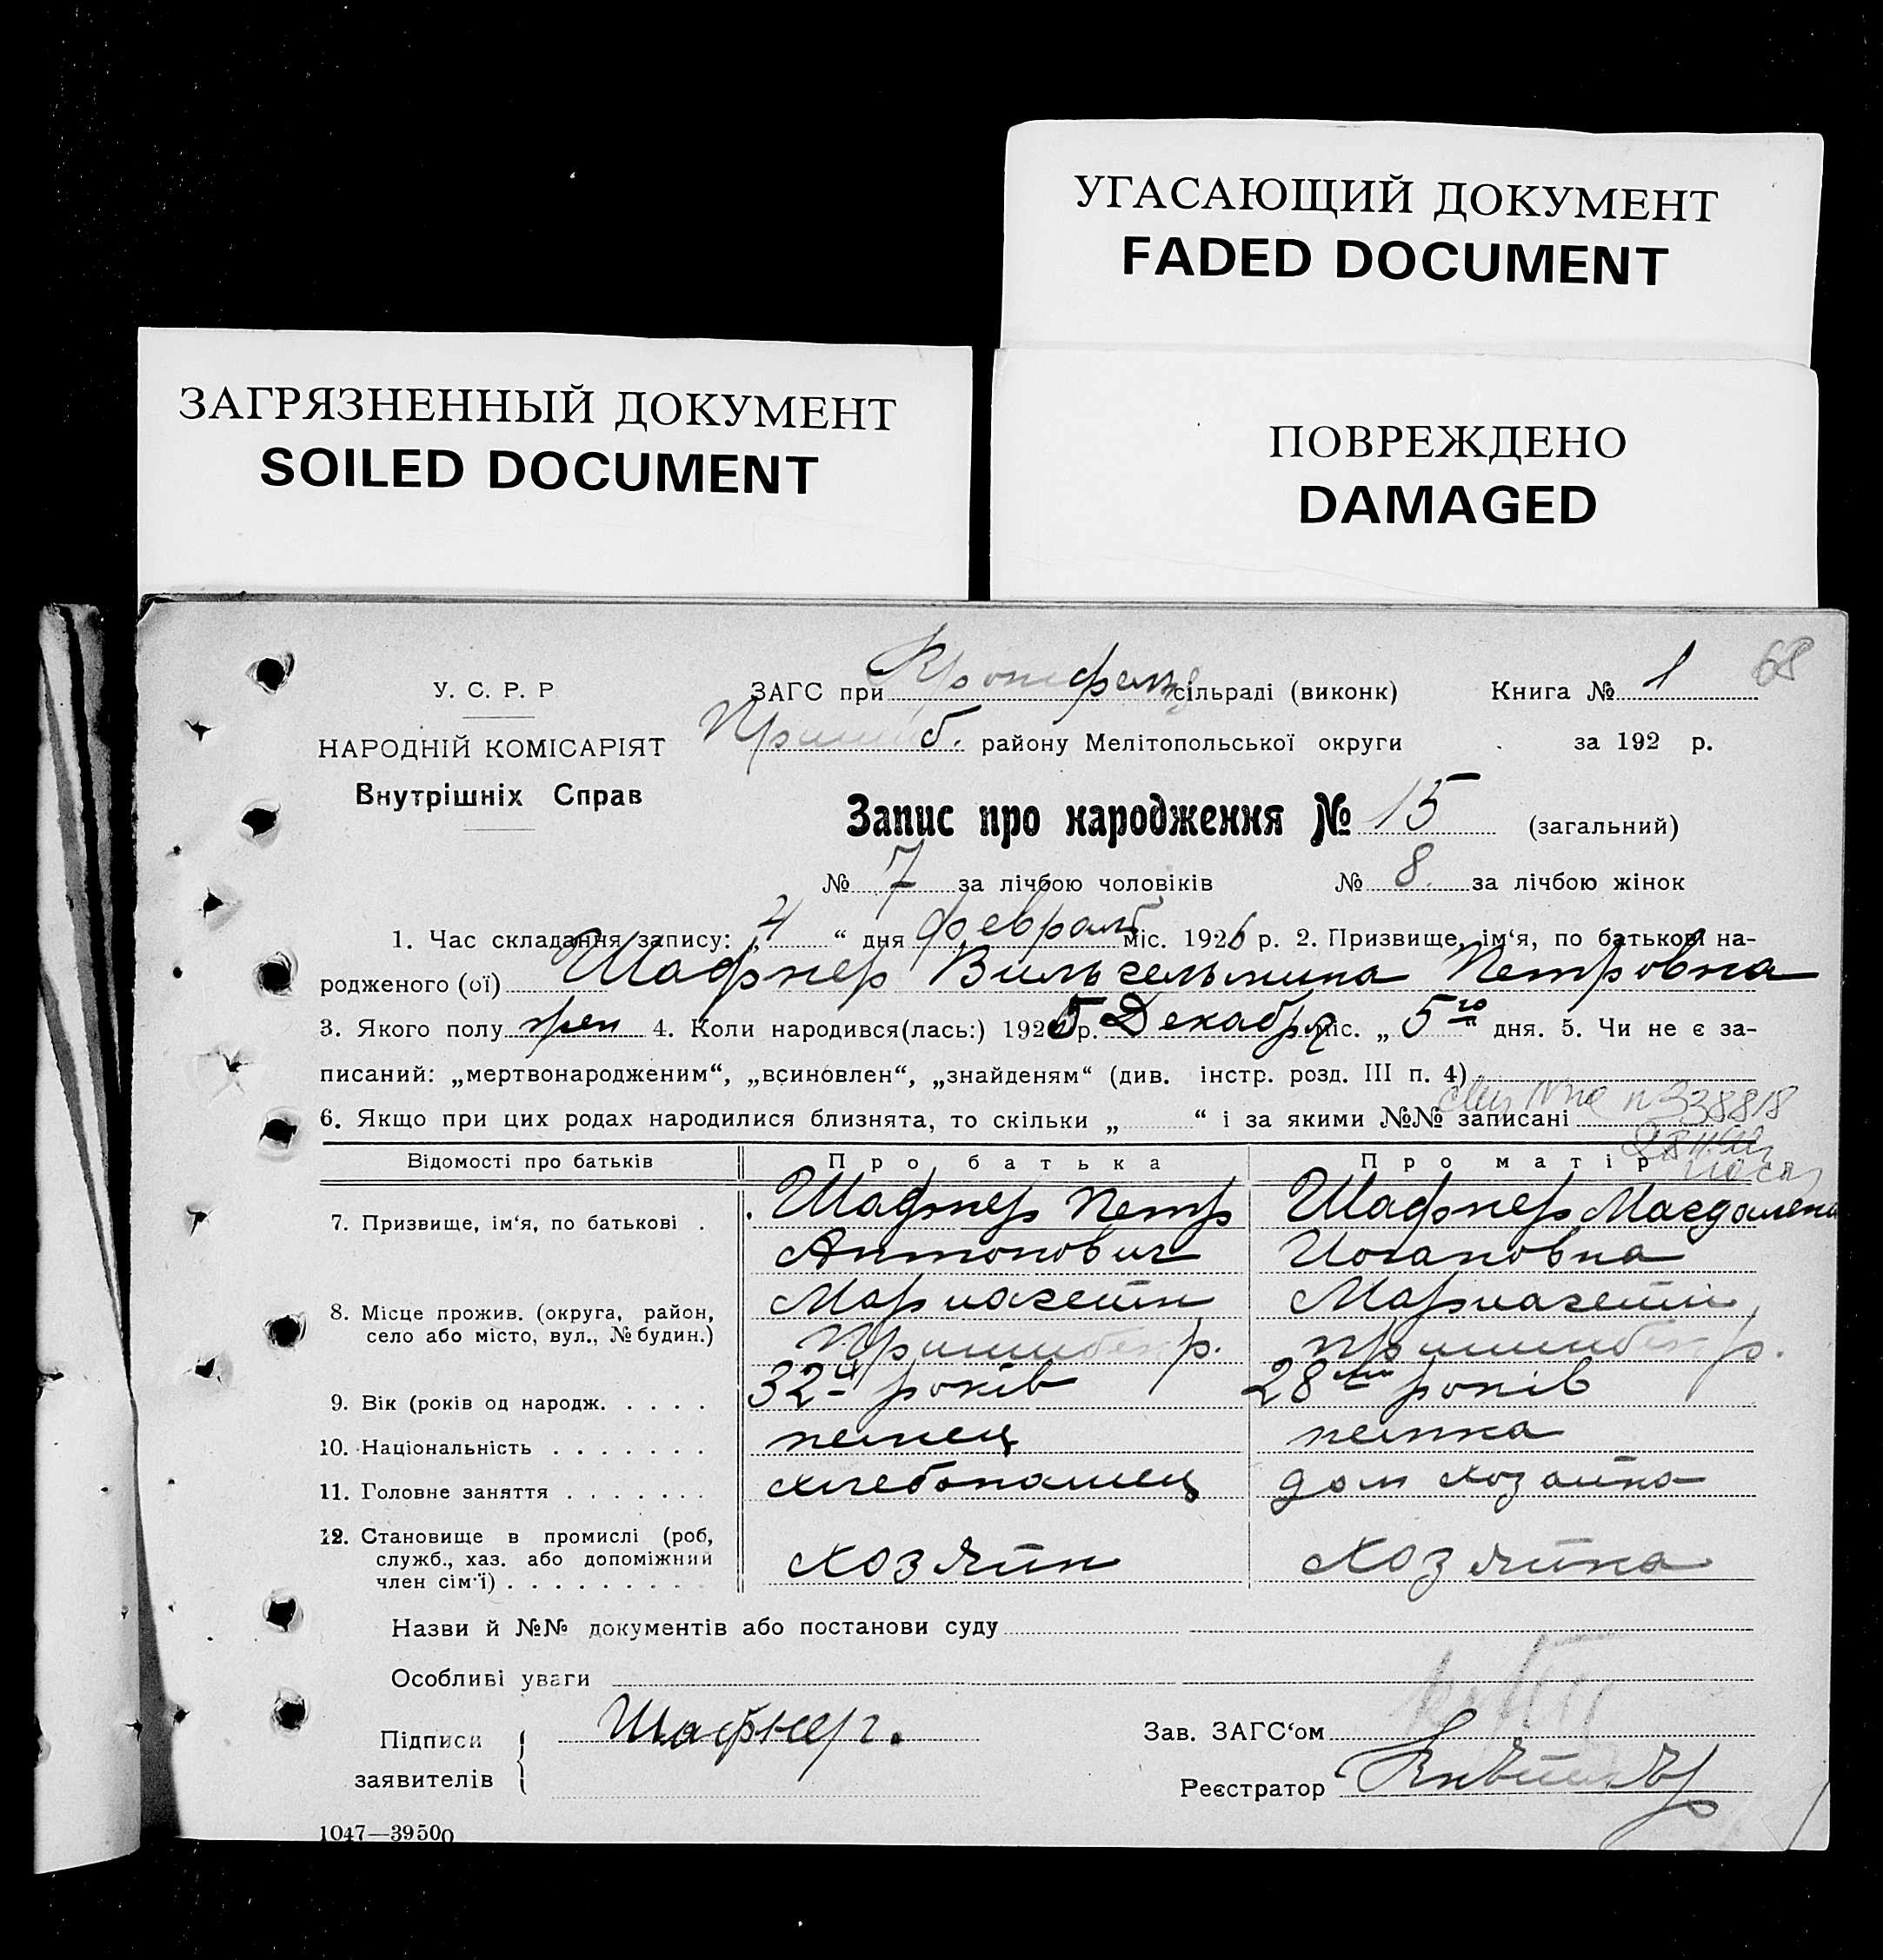 УГАСАЮЩИЙ ДОКУМЕНТ
FADED DOCUMENT
ЗАГРЯЗНЕННЫЙ ДОКУМЕНТ
SOILED DOCUMENT
ПОВРЕЖДЕНО
DAMAGED
68
У. С. Р. Р
НАРОДНІЙ КОМІСАРІЯТ
Внутрішніх Справ
ЗАГС при Кронсфельд сільраді (виконк) Книга № 1
Пришиб. району Мелітопольської округи за 192 р.
Запис про народження № 15 (загальний)
№ 7 за лічбою чоловіків № 8 за лічбою жінок
1. Час складання запису: „4“ дня февраль міс. 1926 р. 2. Призвище, ім‘я, по батькові на-
родженого (ої) Шафнер Вильгельмина Петровна
3. Якого полу жен 4. Коли народився(лась:) 1925 р. Декабря міс. „5го“ дня. 5. Чи не є за-
писаний: „мертвонародженим“, „всиновлен“, „знайденям“ (див. інстр. розд. III п. 4)
6. Якщо при цих родах народилися близнята, то скільки „ “ і за якими №№ записані
338818
Відомості про батьків Про батька Про матір
7. Призвище, ім‘я, по батькові . Шафнер Петр Шафнер Магдалена
Антонович Иогановна
8. Місце прожив. (округа, район, село або місто, вул., № будин.) Мариагейм Мариагейм,
Пришибск р. Пришибск р.
9. Вік (років од народж. . . . . 32 років 28 років
10. Національність . . . . . . . немец немка
11. Головне заняття . . . . . . . хлебопашец дом хозайка
12. Становище в промислі (роб, служб., хаз. або допоміжний член сім'ї) . . . . . . . . . хозяйн хозяйка
Назви й №№ документів або постанови суду
Особливі уваги
Підписи заявителів Шафнер.
Зав. ЗАГС‘ом
Реєстратор
1047—39500